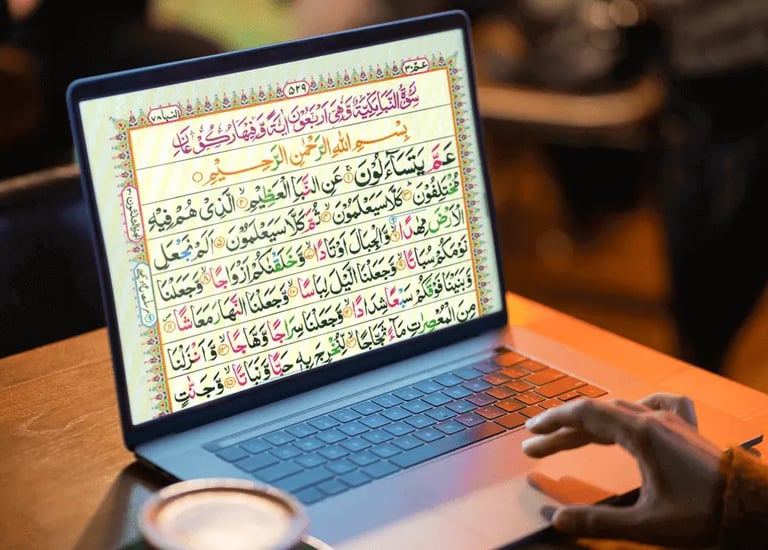 عم ٣٠
٥٢٩
النبا ٧٨
سُوْرَةُ النَّبَاِ مَكِّيَّةٌ وَّهِيَ اَرْبَعُوْنَ اٰيَةً وَّفِيْهَا رُكُوْعَانِ
بِسْمِ اللّٰهِ الرَّحْمٰنِ الرَّحِيْمِ
عَمَّ يَتَسَآءَلُوْنَ ۝١ عَنِ النَّبَاِ الْعَظِيْمِ ۝٢ الَّذِيْ هُمْ فِيْهِ
مُخْتَلِفُوْنَ ۝٣ كَلَّا سَيَعْلَمُوْنَ ۝٤ ثُمَّ كَلَّا سَيَعْلَمُوْنَ ۝٥ اَلَمْ نَجْعَلِ
الْاَرْضَ مِهٰدًا ۝٦ وَّالْجِبَالَ اَوْتَادًا ۝٧ وَّخَلَقْنٰكُمْ اَزْوَاجًا ۝٨ وَّجَعَلْنَا
نَوْمَكُمْ سُبَاتًا ۝٩ وَّجَعَلْنَا الَّيْلَ لِبَاسًا ۝١٠ وَّجَعَلْنَا النَّهَارَ مَعَاشًا ۝١١
وَّبَنَيْنَا فَوْقَكُمْ سَبْعًا شِدَادًا ۝١٢ وَّجَعَلْنَا سِرَاجًا وَّهَّاجًا ۝١٣ وَّاَنْزَلْنَا
مِنَ الْمُعْصِرٰتِ مَآءً ثَجَّاجًا ۝١٤ لِّنُخْرِجَ بِهٖ حَبًّا وَّنَبَاتًا ۝١٥ وَّجَنّٰتٍ